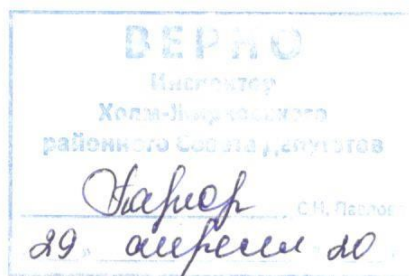 ВЕРНО
Инспектор
Холм-Жирковского
районного Совета депутатов
С.Н. Павлов
29 " апреля 20